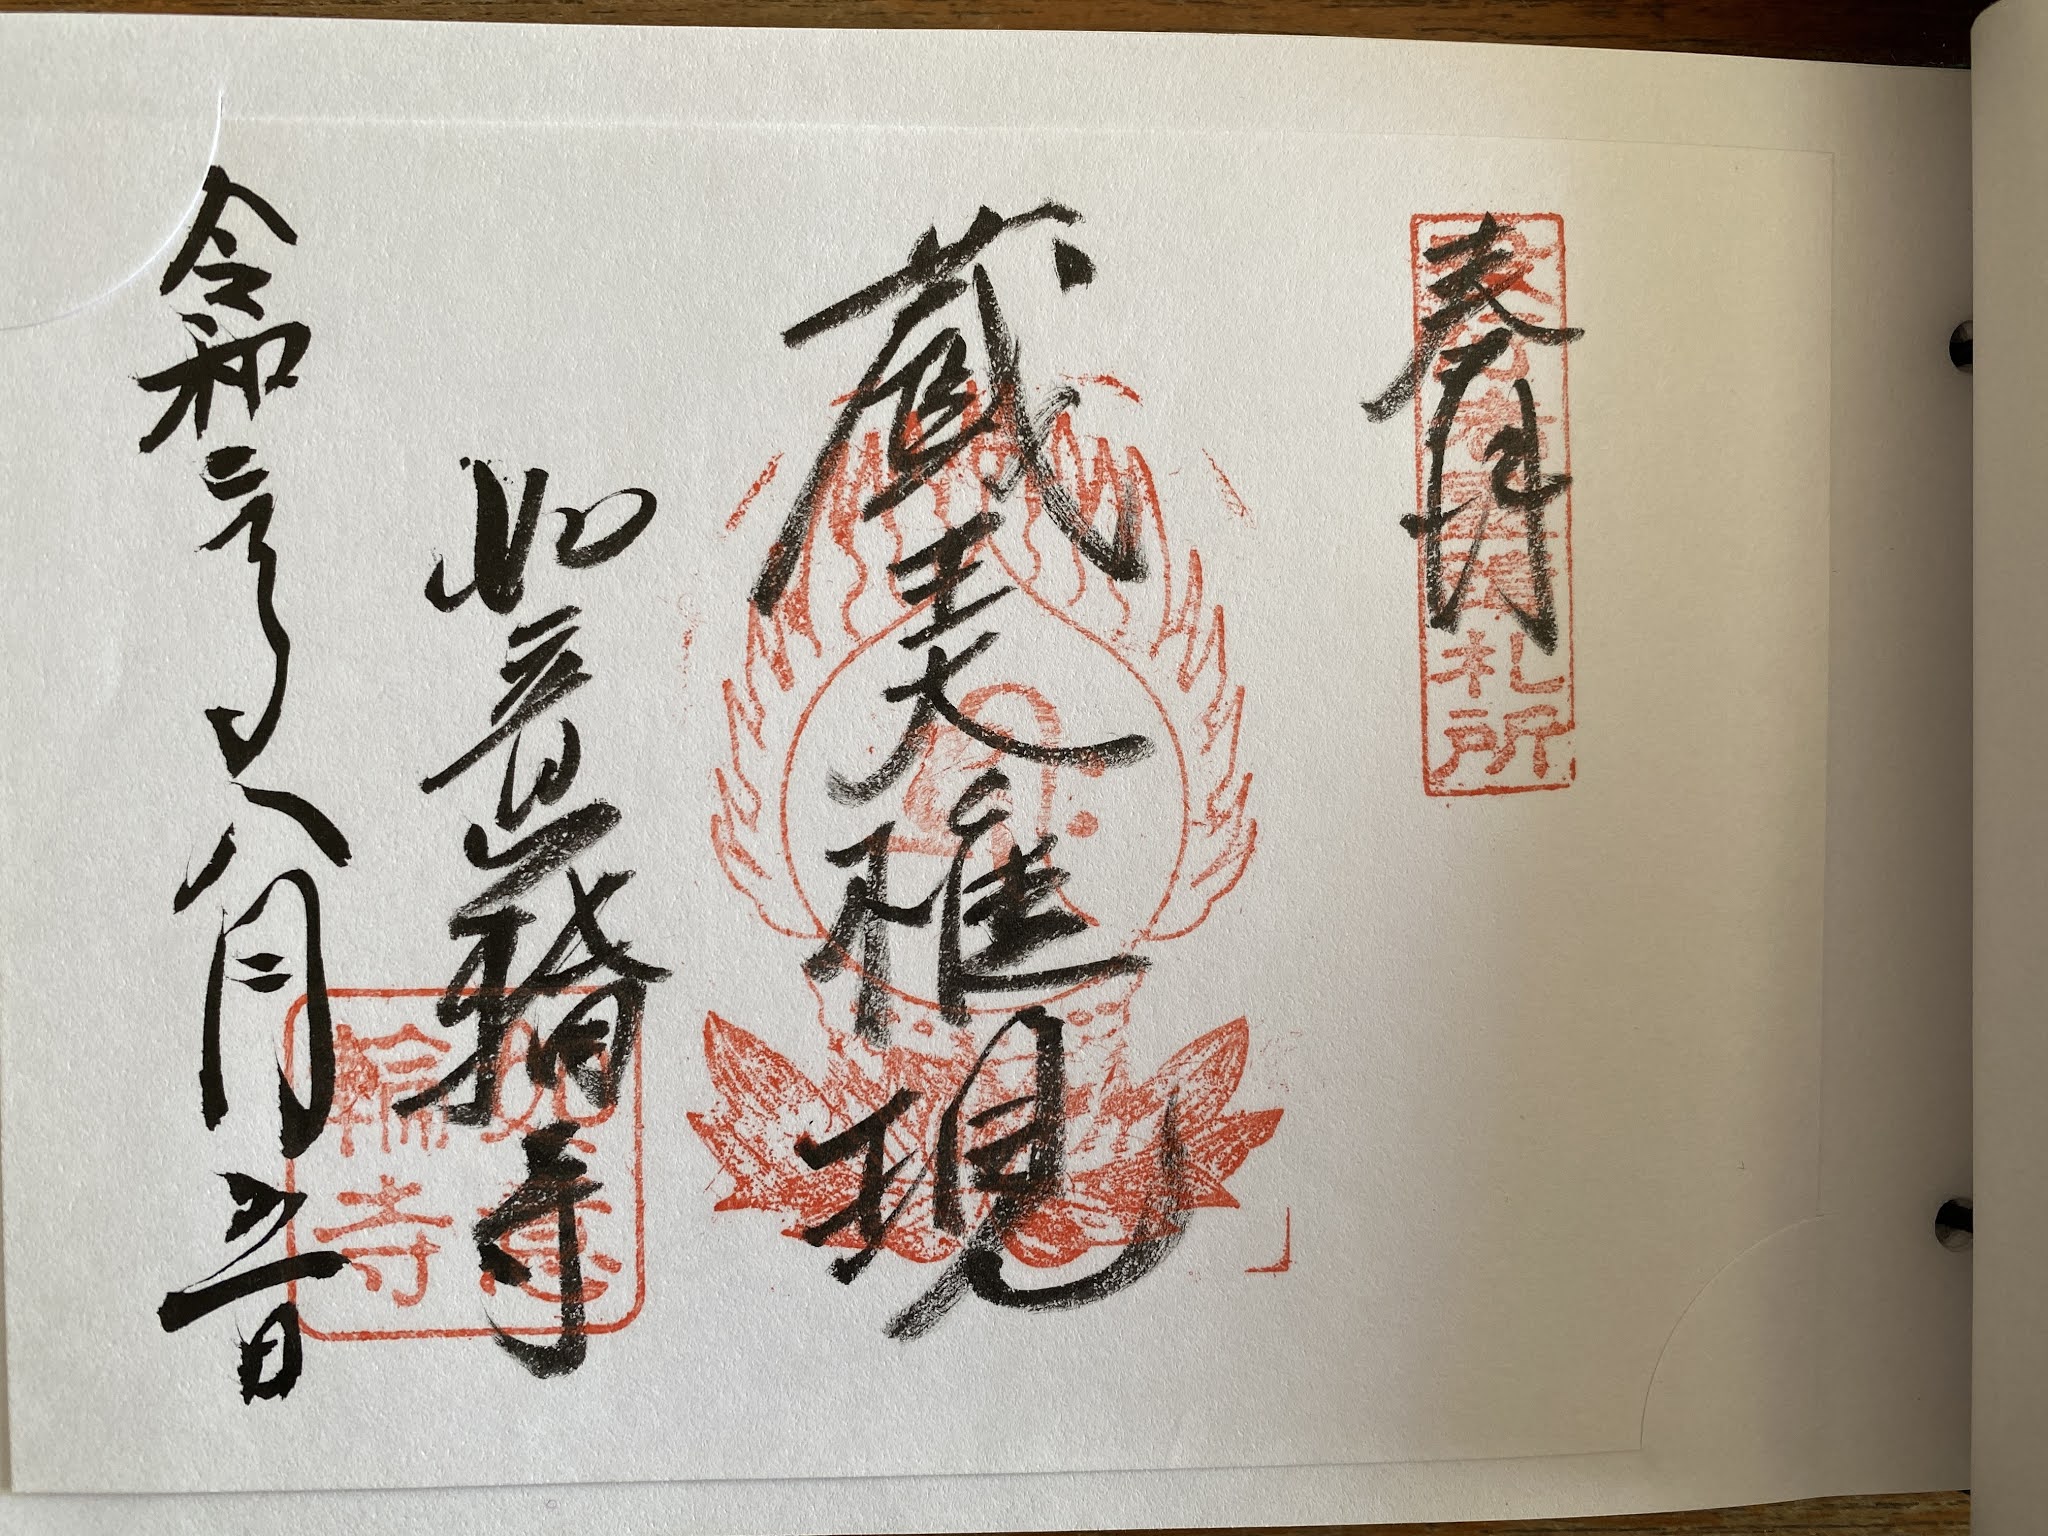 役行者霊蹟札所
奉拝
蔵王大権現
如意輪寺
如意
輪寺
令和 年八月 日